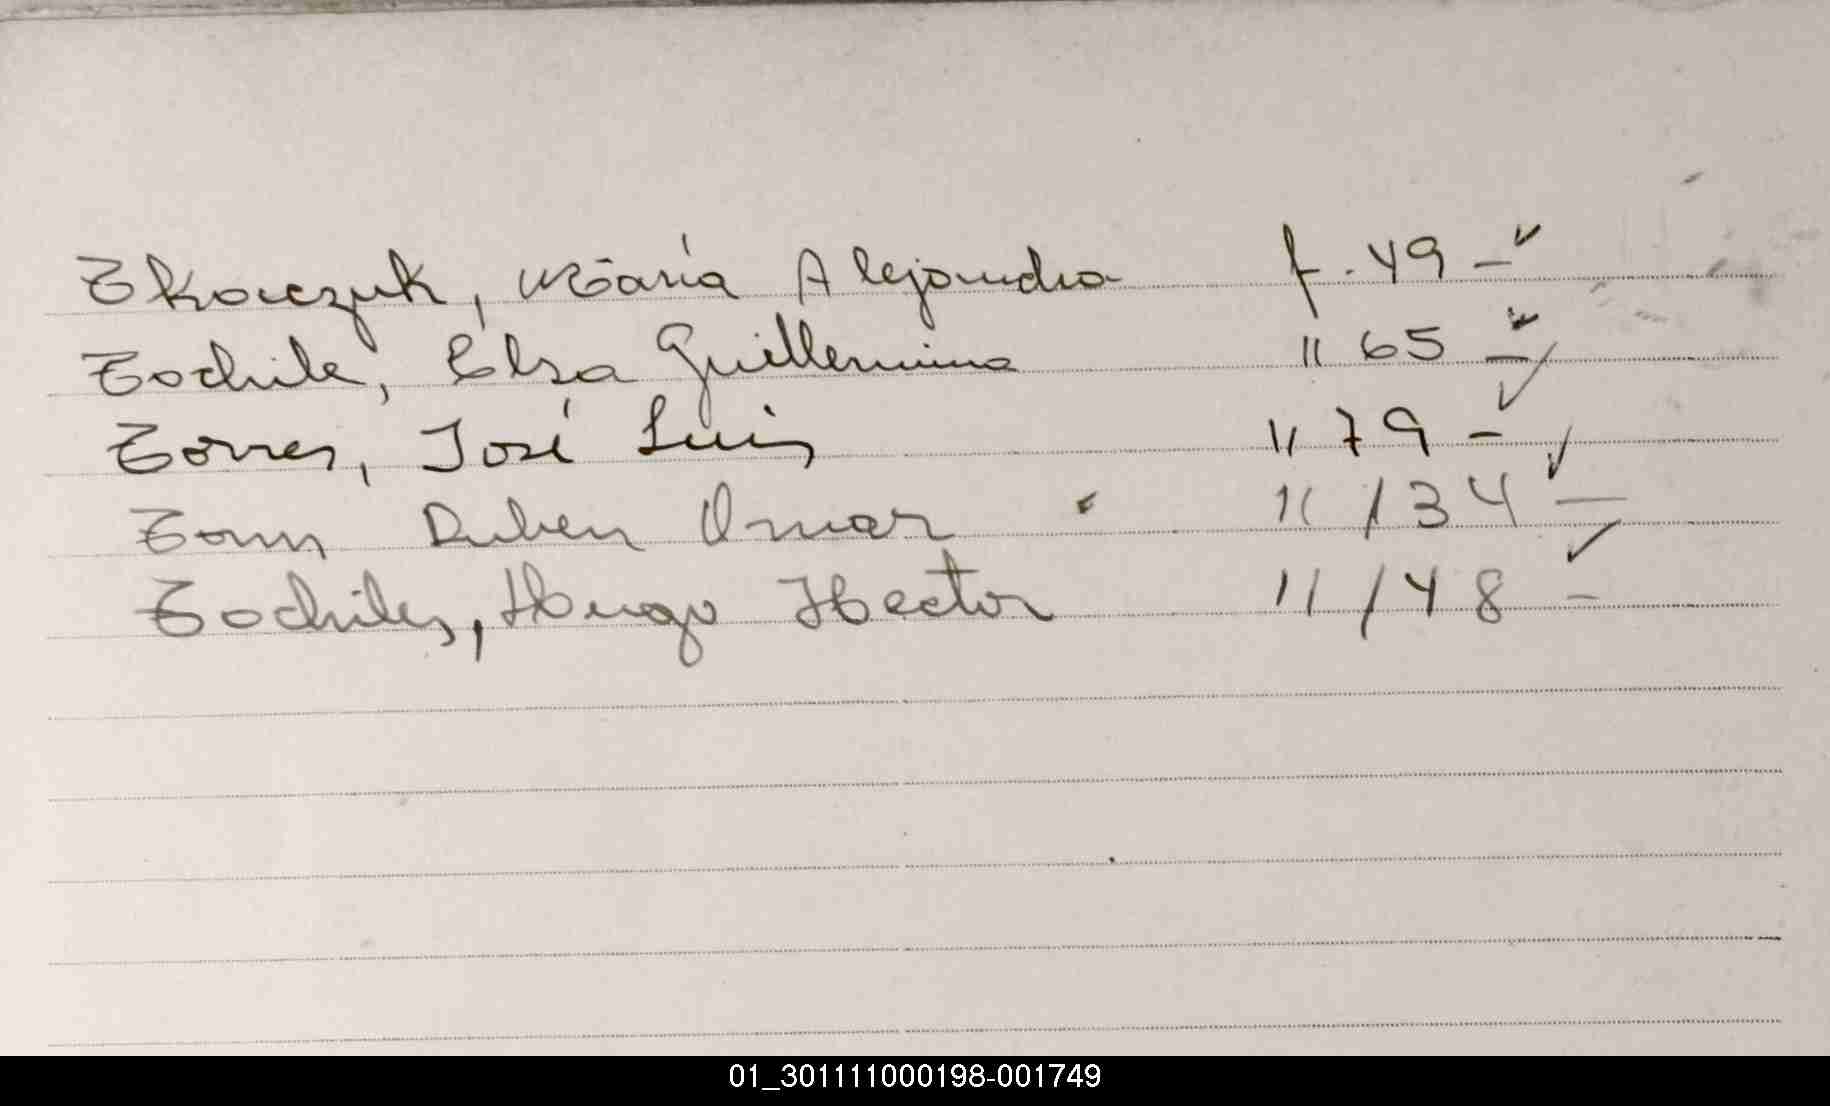 Tkaczuk, María Alejandra f. 49 -
Tochile, Elsa Guillermina " 65 -
Torres, José Luis " 79 -
Torres Ruben Omar " 134 -
Tochiles, Hugo Hector " 148 -
01_301111000198-001749